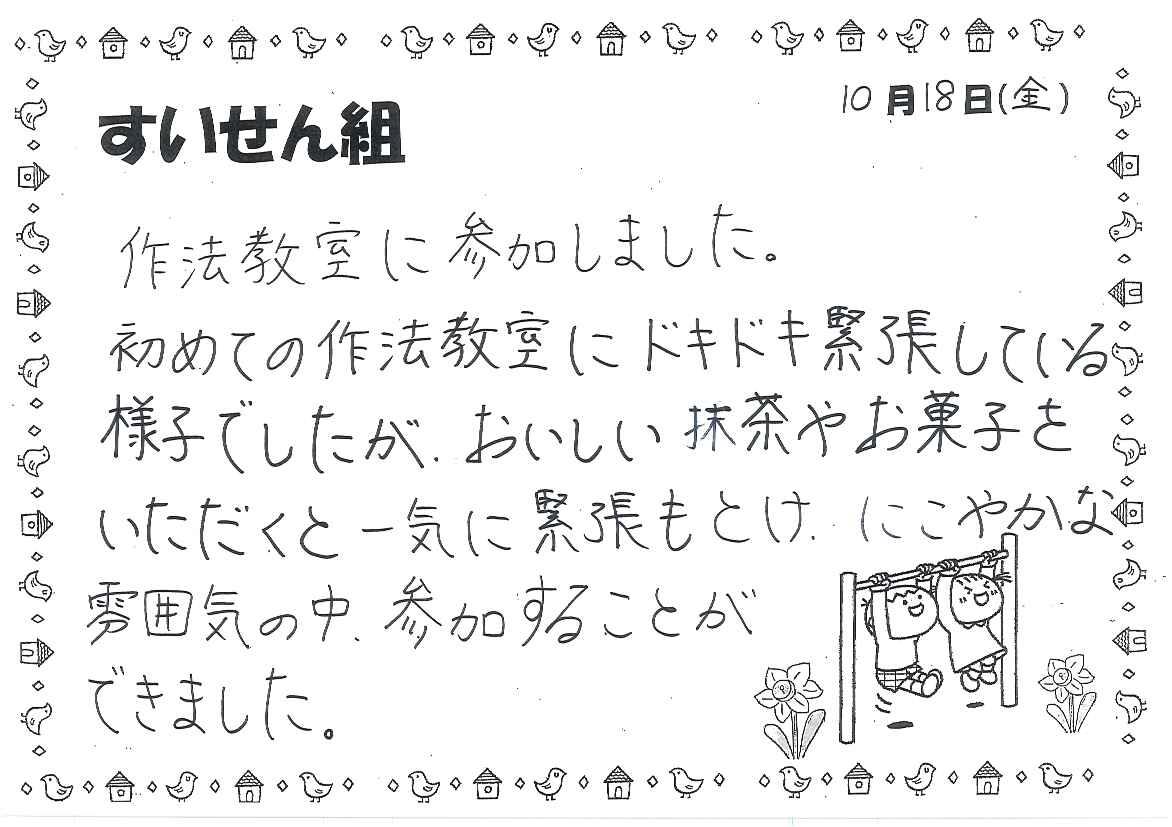 10月18日(金)
すいせん組
作法教室に参加しました。
初めての作法教室にドキドキ緊張している
様子でしたが、おいしい抹茶やお菓子を
いただくと一気に緊張もとけ、にこやかな
雰囲気の中、参加することが
できました。